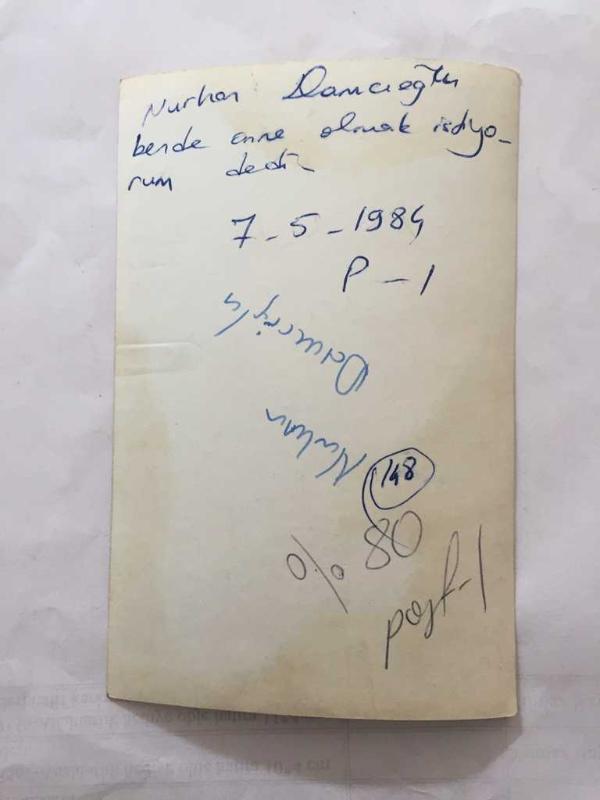 Nurhan Damcıoğlu
bende anne olmak istiyo-
rum dedi
7-5-1984
P-1
Nurhan
Damcıoğlu
148
% 80